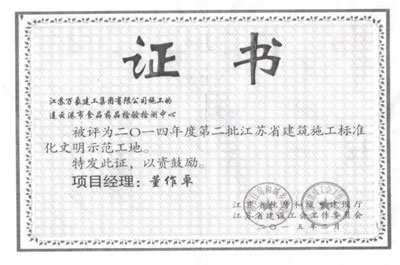 证书
江苏万豪建工集团有限公司施工的
连云港市食品药品检验检测中心
被评为二〇一四年度第二批江苏省建筑施工标准
化文明示范工地。
特发此证，以资鼓励。
项目经理：董作卓
江苏省住房和城乡建设厅
江苏省建设工会工作委员会
二〇一五年二月